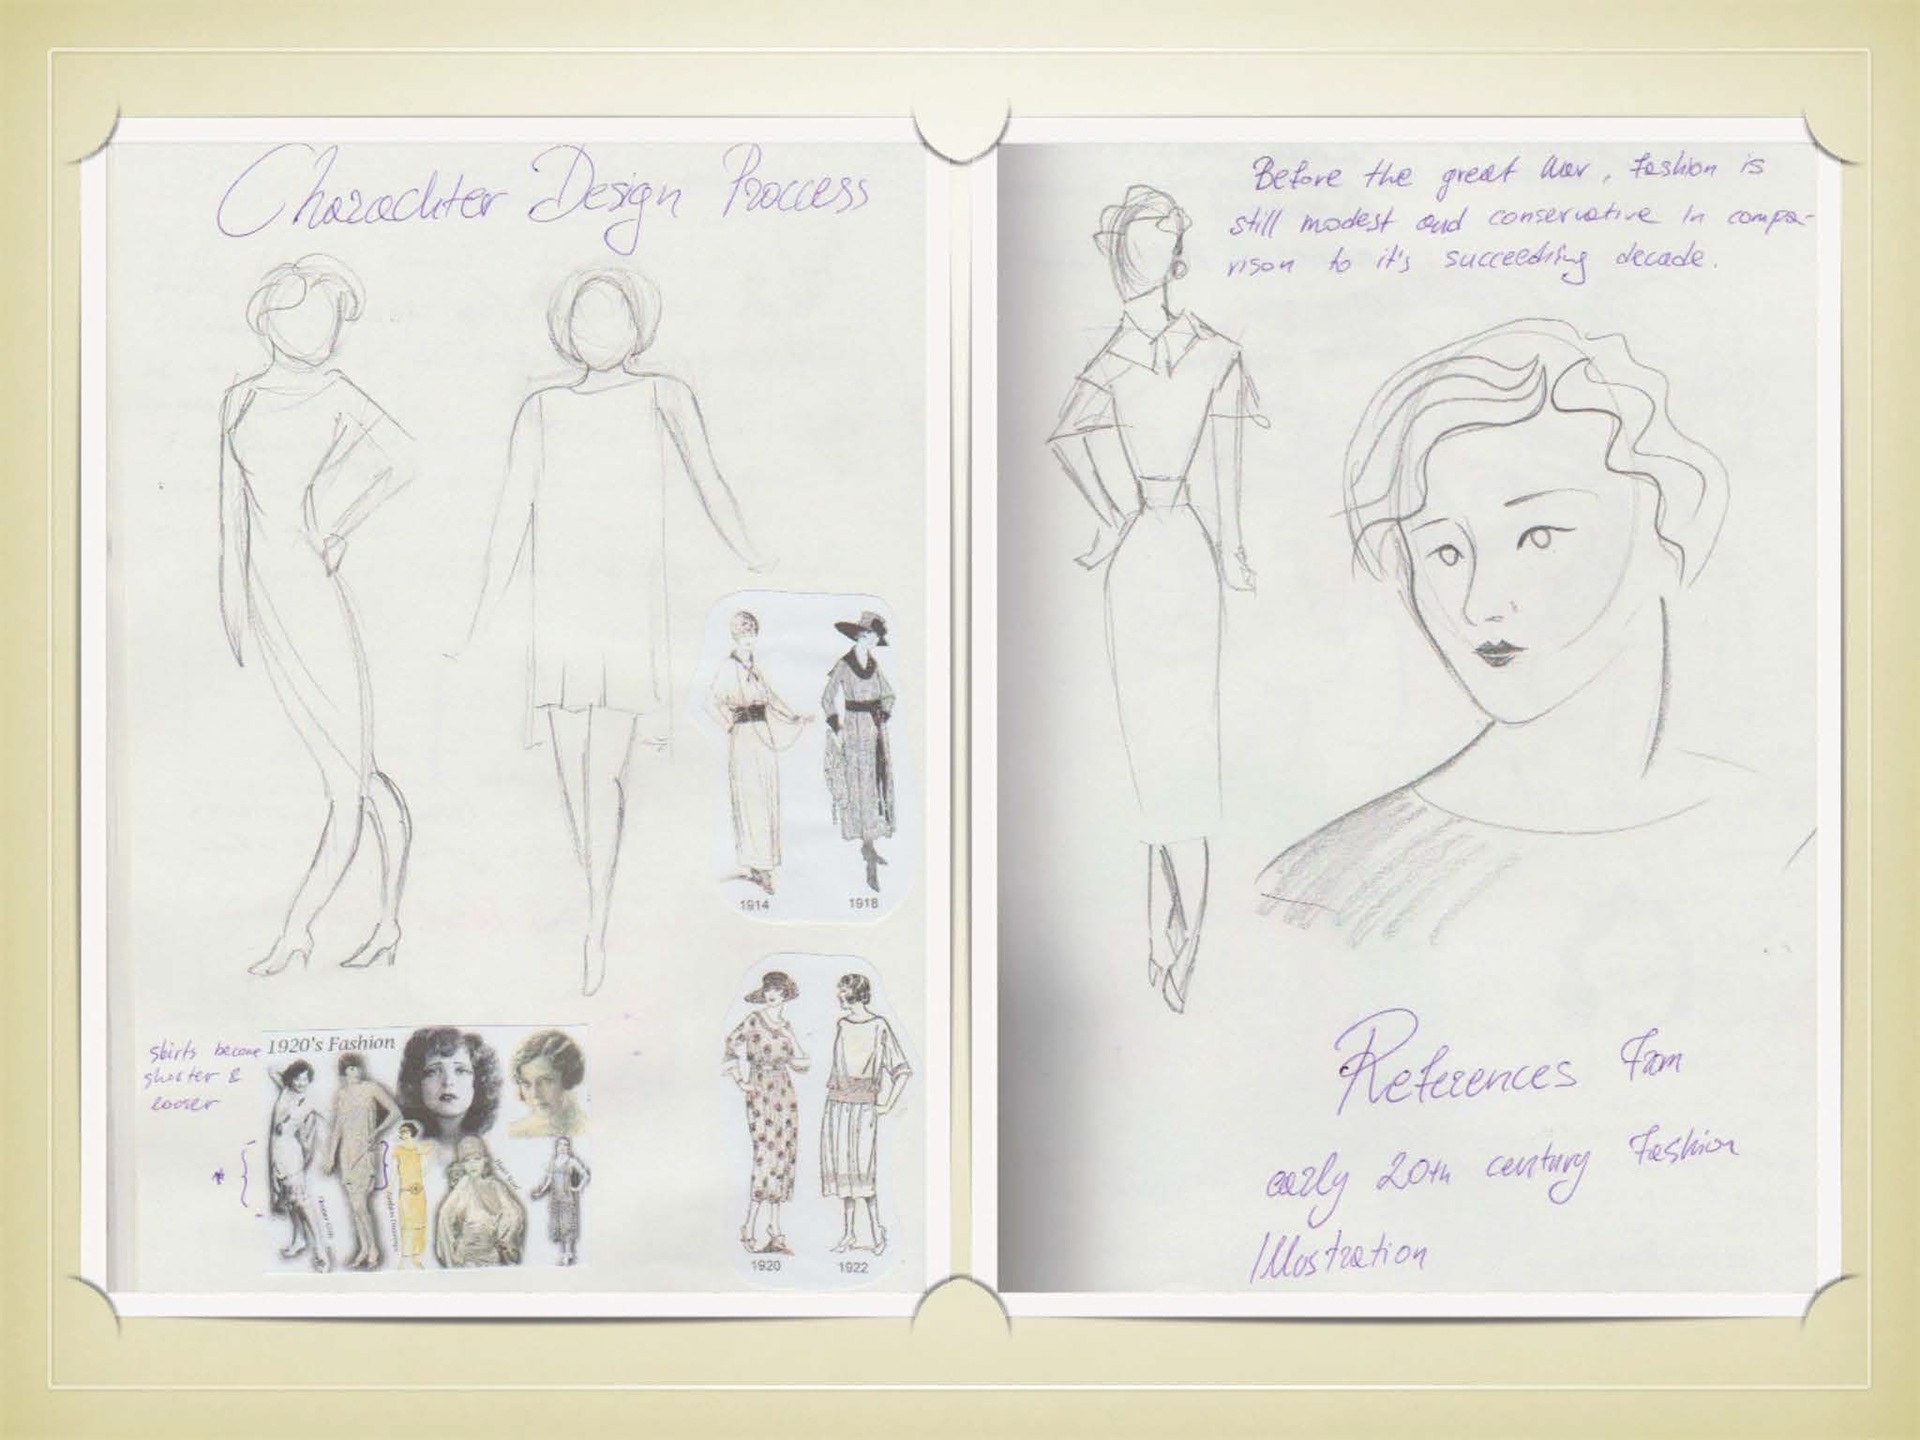 Charachter Design Proccess
1914
1918
skirts become
shorter &
looser
1920's Fashion
1920
1922
Before the great War, Fashion is
still modest and conservative in compa-
rison to it's succeeding decade.
References From
early 20th century Fashion
Illustration